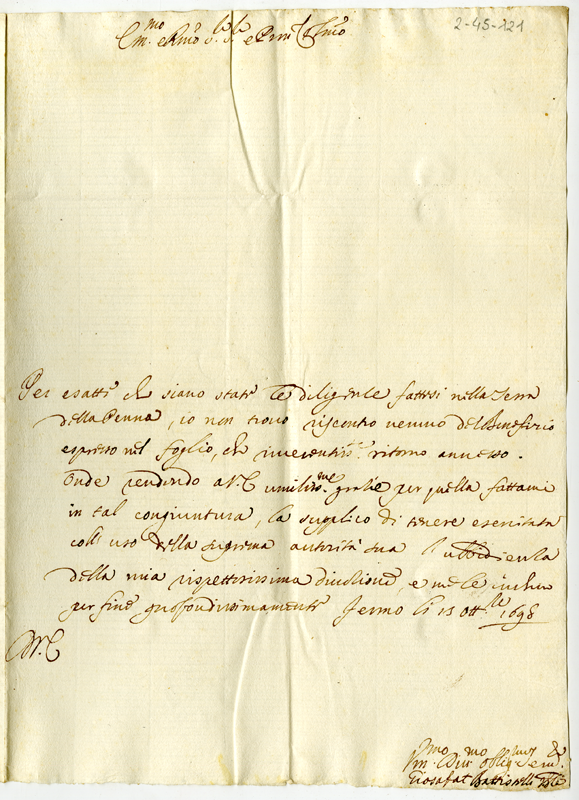 2-45-121
Em.mo e Rmo S.r S.r e Prne Col.mo
Per esatte che siano state le diligenze fattesi nella Terra
della Penna, io non trovo riscontro veruno del Beneficio
espresso nel foglio, che riverentem.te ritorno annesso.
Onde rendendo a V.E. umiliss.me grazie per quella fattami
in tal congiuntura, la supplico di tenere esercitata
coll' uso della suprema autorità sua l'ubbidienza
della mia rispettosissima divozione, e me le inchino
per fine profondissimamente Fermo li 15 Ott.re 1698
D. V. E.
Um.mo Div.mo Oblig.mo Serv.
Giosafat Battistelli